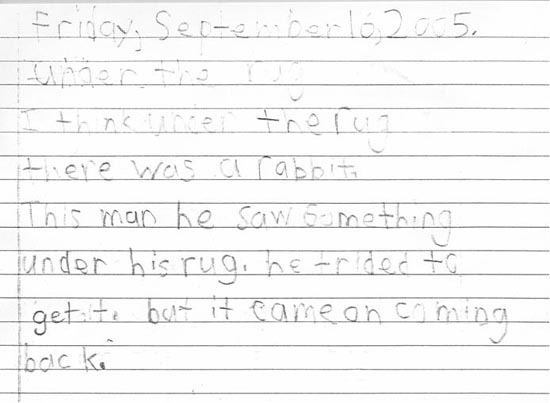 Friday, September 16, 2005.
Under the rug
I think under the rug
there was a rabbit.
This man he saw something
under his rug. he trided to
get it. but it came on coming
back.